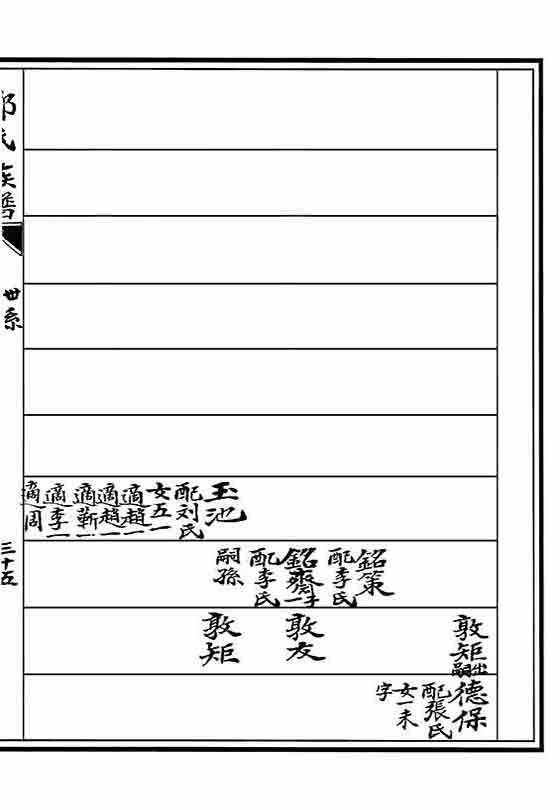 玉池
配刘氏
女五一
適趙一
適趙一
適靳一
適李一
適周
銘策
配李氏
銘齋
一子
配李氏
嗣孫
敦矩
出嗣
敦友
敦矩
德保
配張氏
女一未
字
氏族譜
世系
三十五